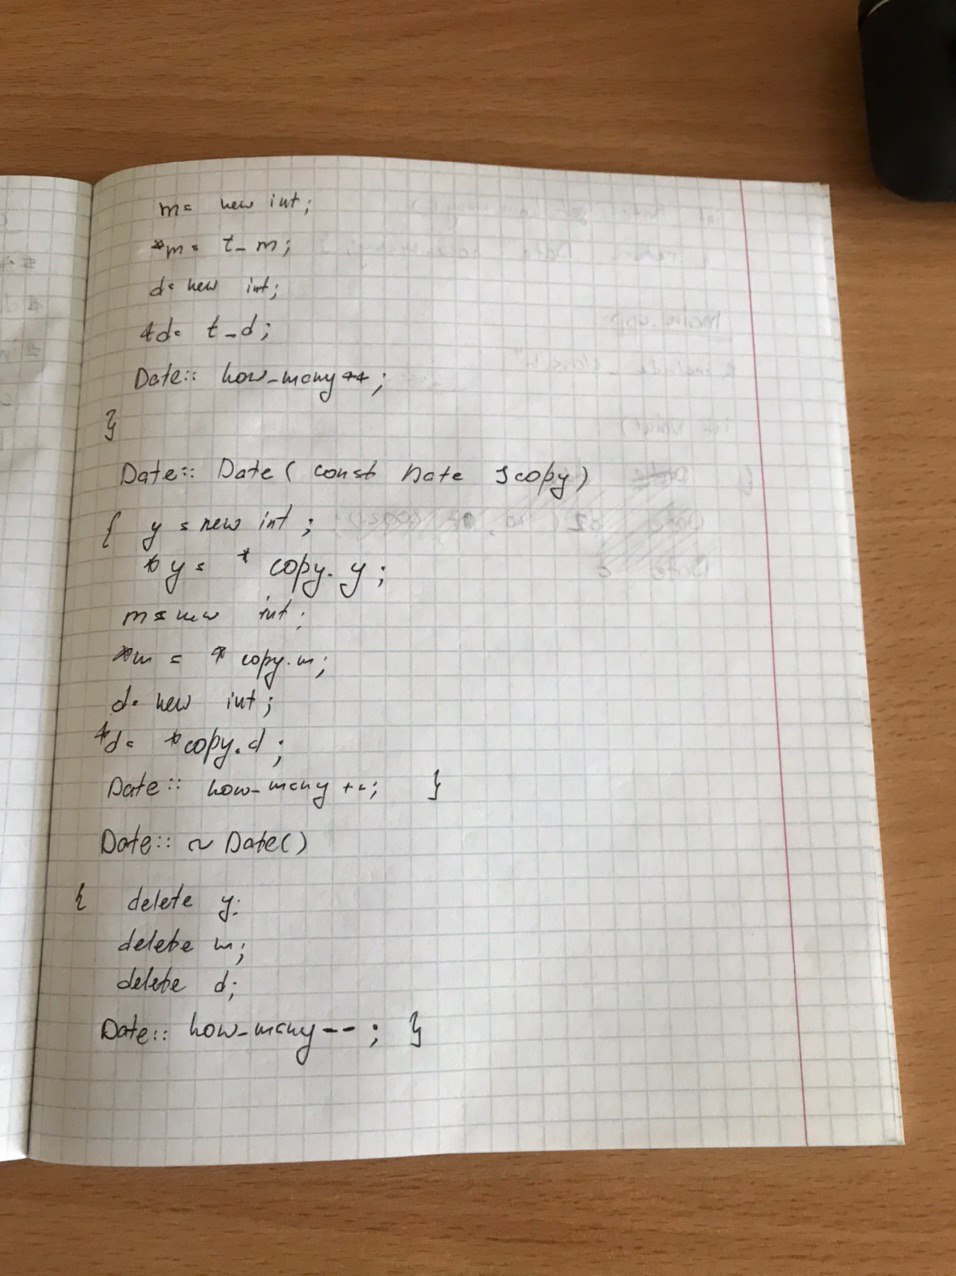 m= new int;
*m= t_m;
d= new int;
*d= t_d;
Date:: how_many++;
}
Date:: Date( const Date &copy)
{ y = new int ;
*y= * copy.y;
m=new int;
*m = * copy.m;
d= new int;
*d= *copy.d;
Date:: how_many ++; }
Date:: ~ Date()
{ delete y;
delete m;
delete d;
Date:: how_many--; }